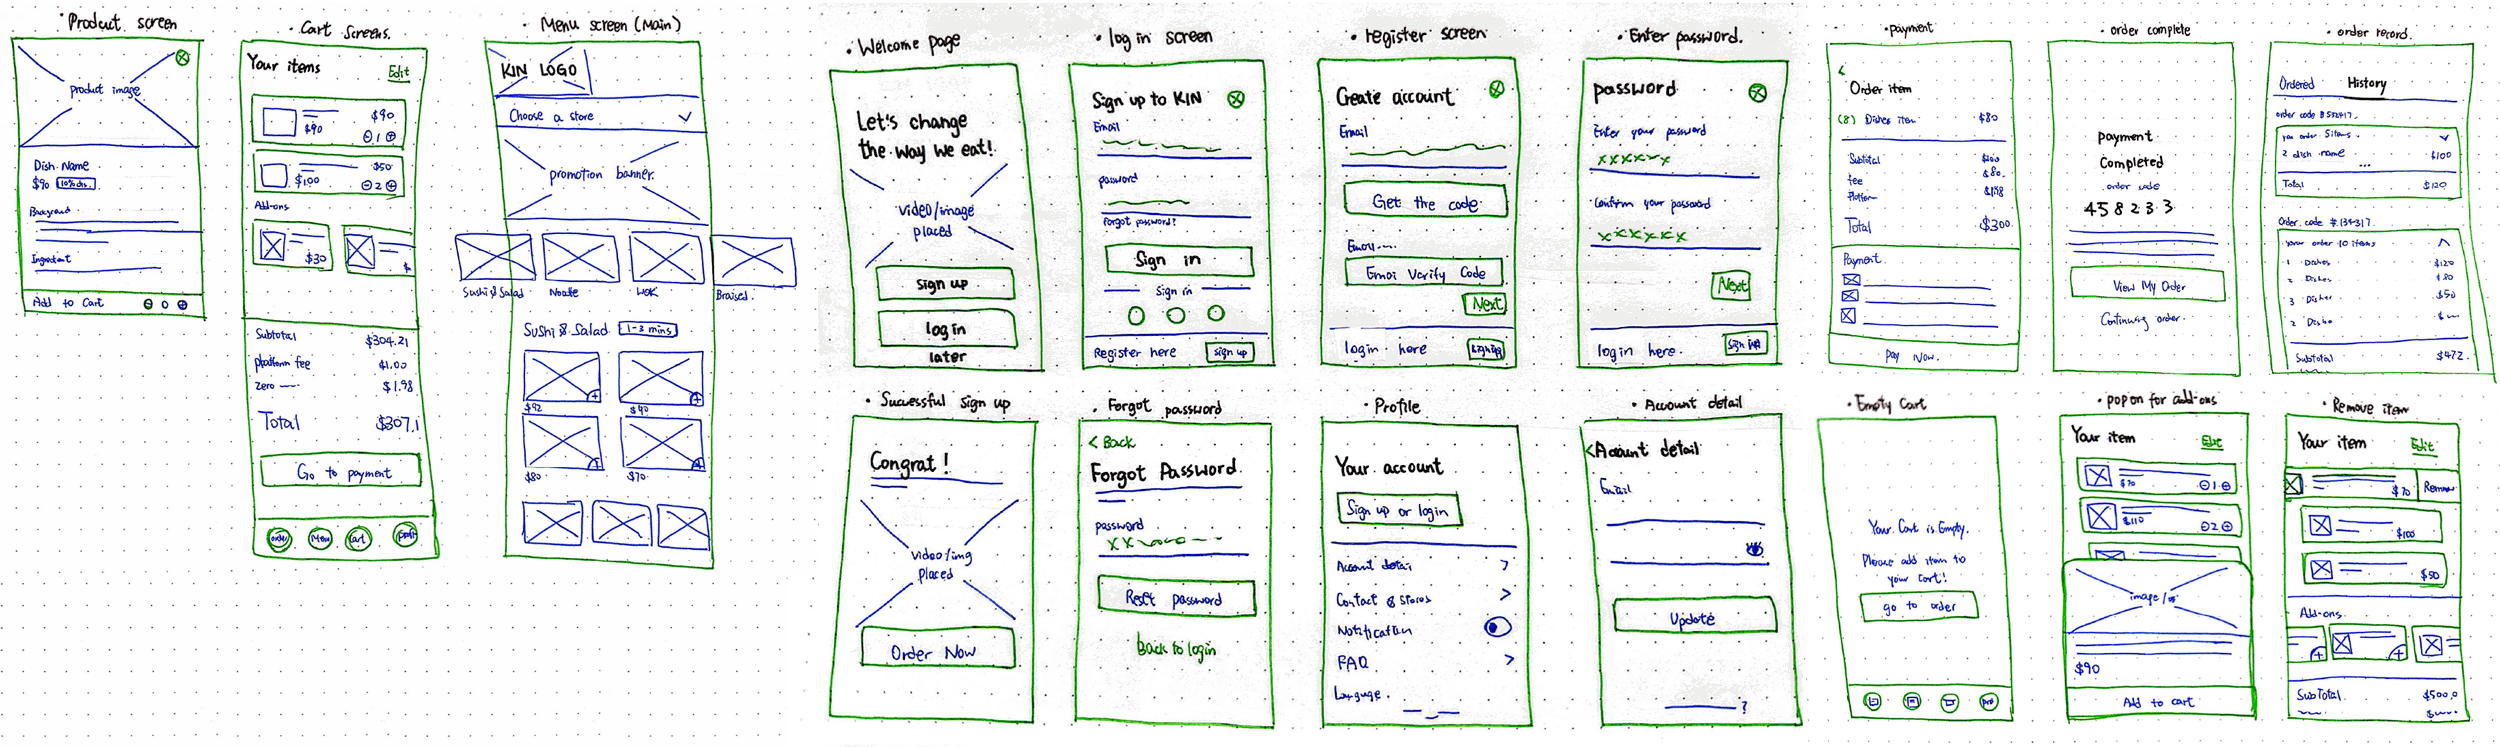 · Product screen
product image
Dish Name
$90 10% dis.
Background
Ingredient
Add to Cart
0
· Cart Screens.
Your items
Edit
$90
$90
1
$50
$100
2
Add-ons
$30
Subtotal $304.21
platform fee $1.00
Zero $1.98
Total $307.1
Go to payment
order Menu Cart
· Menu screen (Main)
KIN LOGO
Choose a store
promotion banner.
Sushi & Salad Noodle WOK Braised.
Sushi & Salad 1-3 mins
$92 $90
$80 $70
· Welcome page
Let's change
the way we eat!
video/image
placed
sign up
log in
later
· log in screen
Sign up to KIN
Email
password
Forgot password?
Sign in
Sign in
Register here sign up
· register screen
Create account
Email
Get the code
Email
Emai Verify Code
Next
login here sign up
· Enter password.
password
Enter your password
xxxxxx
Confirm your password
xxxxxx
Next
login here. sign up
· Successful Sign up
Congrat!
video/img
placed
Order Now
· Forgot password
< Back
Forgot Password
password
Reset password
Back to login
· Profile
Your account
Sign up or login
Account detail >
Contact & stores >
Notification
FAQ >
Languge.
· Account detail
<Account detail
Email
Update
?
· payment
<
Order item
(8) Dishes item $80
Subtotal
fee $80.
Total $300
Payment
Pay Now.
· order complete
payment
Completed
order code
458233
View My Order
Continuing order.
· order record.
Ordered History
2 dish name $100
...
Total $120
Order code
your order 10 items
1 Dishes $120
2 Dishes
3 Dishes $50
2
Subtotal $472.
· Empty Cart
Your Cart is Empty.
Please add item to
your cart!
go to order
· pop on for add-ons
Your item Edit
$70 1
$110 2
$90
Add to cart
· Remove item
Your item Edit
$70 Remove
$100
$50
Add-ons
SubTotal $500.0